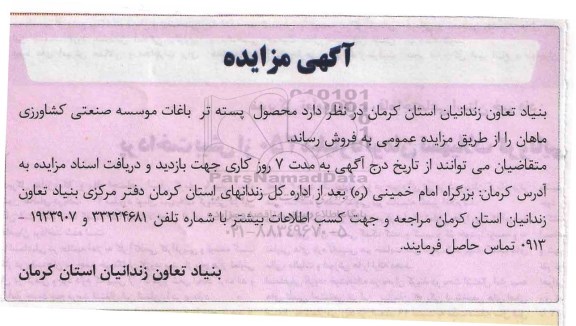 آگهی مزایده
بنیاد تعاون زندانیان استان کرمان در نظر دارد محصول پسته تر باغات موسسه صنعتی کشاورزی
ماهان را از طریق مزایده عمومی به فروش رساند.
متقاضیان می توانند از تاریخ درج آگهی به مدت ۷ روز کاری جهت بازدید و دریافت اسناد مزایده به
آدرس کرمان: بزرگراه امام خمینی (ره) بعد از اداره کل زندانهای استان کرمان دفتر مرکزی بنیاد تعاون
زندانیان استان کرمان مراجعه و جهت کسب اطلاعات بیشتر با شماره تلفن ۳۳۲۲۴۶۸۱ و ۱۹۲۳۹۰۷ -
۰۹۱۳ تماس حاصل فرمایند.
بنیاد تعاون زندانیان استان کرمان
ParsNamadData